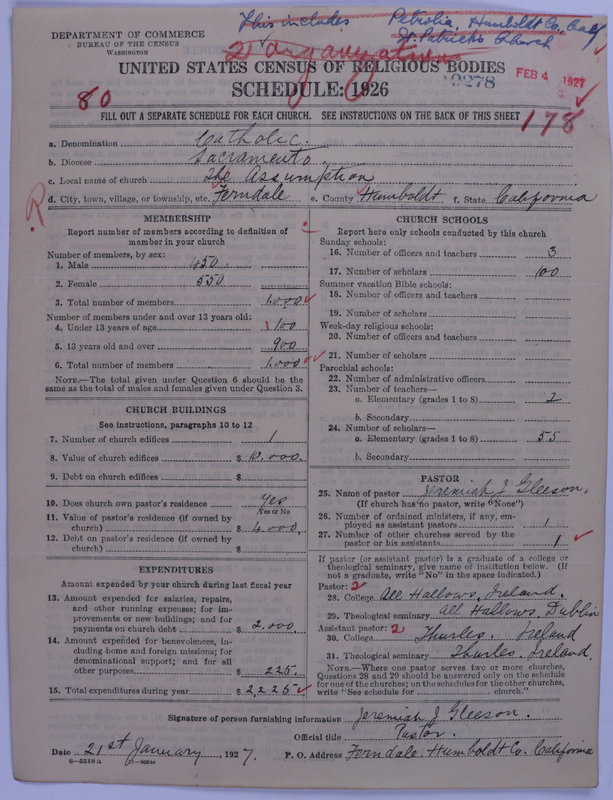 This includes Petrolia, Humboldt Co. Calif
St. Patricks Church
2 organizations
DEPARTMENT OF COMMERCE
BUREAU OF THE CENSUS
WASHINGTON
UNITED STATES CENSUS OF RELIGIOUS BODIES
2278
FEB 4 1927
SCHEDULE: 1926
80
178
FILL OUT A SEPARATE SCHEDULE FOR EACH CHURCH. SEE INSTRUCTIONS ON THE BACK OF THIS SHEET
a. Denomination Catholic.
b. Diocese Sacramento
c. Local name of church The Assumption
d. City, town, village, or township, etc. Ferndale e. County Humboldt f. State California
R
MEMBERSHIP
Report number of members according to definition of
member in your church
Number of members, by sex:
1. Male 450
2. Female 550
3. Total number of members 1,000
Number of members under and over 13 years old:
4. Under 13 years of age 100
5. 13 years old and over 900
6. Total number of members 1,000
NOTE.—The total given under Question 6 should be the
same as the total of males and females given under Question 3.
CHURCH BUILDINGS
See instructions, paragraphs 10 to 12
7. Number of church edifices 1
8. Value of church edifices $ 10,000.
9. Debt on church edifices $
10. Does church own pastor's residence Yes
Yes or No
11. Value of pastor's residence (if owned by
church) $ 4,000.
12. Debt on pastor's residence (if owned by
church) $
EXPENDITURES
Amount expended by your church during last fiscal year
13. Amount expended for salaries, repairs,
and other running expenses; for im-
provements or new buildings; and for
payments on church debt $ 2,000
14. Amount expended for benevolences, in-
cluding home and foreign missions; for
denominational support; and for all
other purposes $ 225.
15. Total expenditures during year $ 2,225
CHURCH SCHOOLS
Report here only schools conducted by this church
Sunday schools:
16. Number of officers and teachers 3
17. Number of scholars 100
Summer vacation Bible schools:
18. Number of officers and teachers
19. Number of scholars
Week-day religious schools:
20. Number of officers and teachers
21. Number of scholars
Parochial schools:
22. Number of administrative officers
23. Number of teachers—
a. Elementary (grades 1 to 8) 2
b. Secondary
24. Number of scholars—
a. Elementary (grades 1 to 8) 55
b. Secondary
PASTOR
25. Name of pastor Jeremiah J Gleeson.
(If church has no pastor, write "None")
26. Number of ordained ministers, if any, em-
ployed as assistant pastors 1
27. Number of other churches served by the
pastor or his assistants 1
If pastor (or assistant pastor) is a graduate of a college or
theological seminary, give name of institution below. (If
not a graduate, write "No" in the space indicated.)
Pastor: 2
28. College All Hallows, Ireland.
29. Theological seminary All Hallows, Dublin
Assistant pastor: 2
30. College Thurles. Ireland
31. Theological seminary Thurles. Ireland.
NOTE.—Where one pastor serves two or more churches,
Questions 28 and 29 should be answered only on the schedule
for one of the churches; on the schedules for the other churches,
write "See schedule for church."
Signature of person furnishing information Jeremiah J Gleeson.
Official title Pastor.
Date 21st January, 1927. P. O. Address Ferndale, Humboldt Co. California